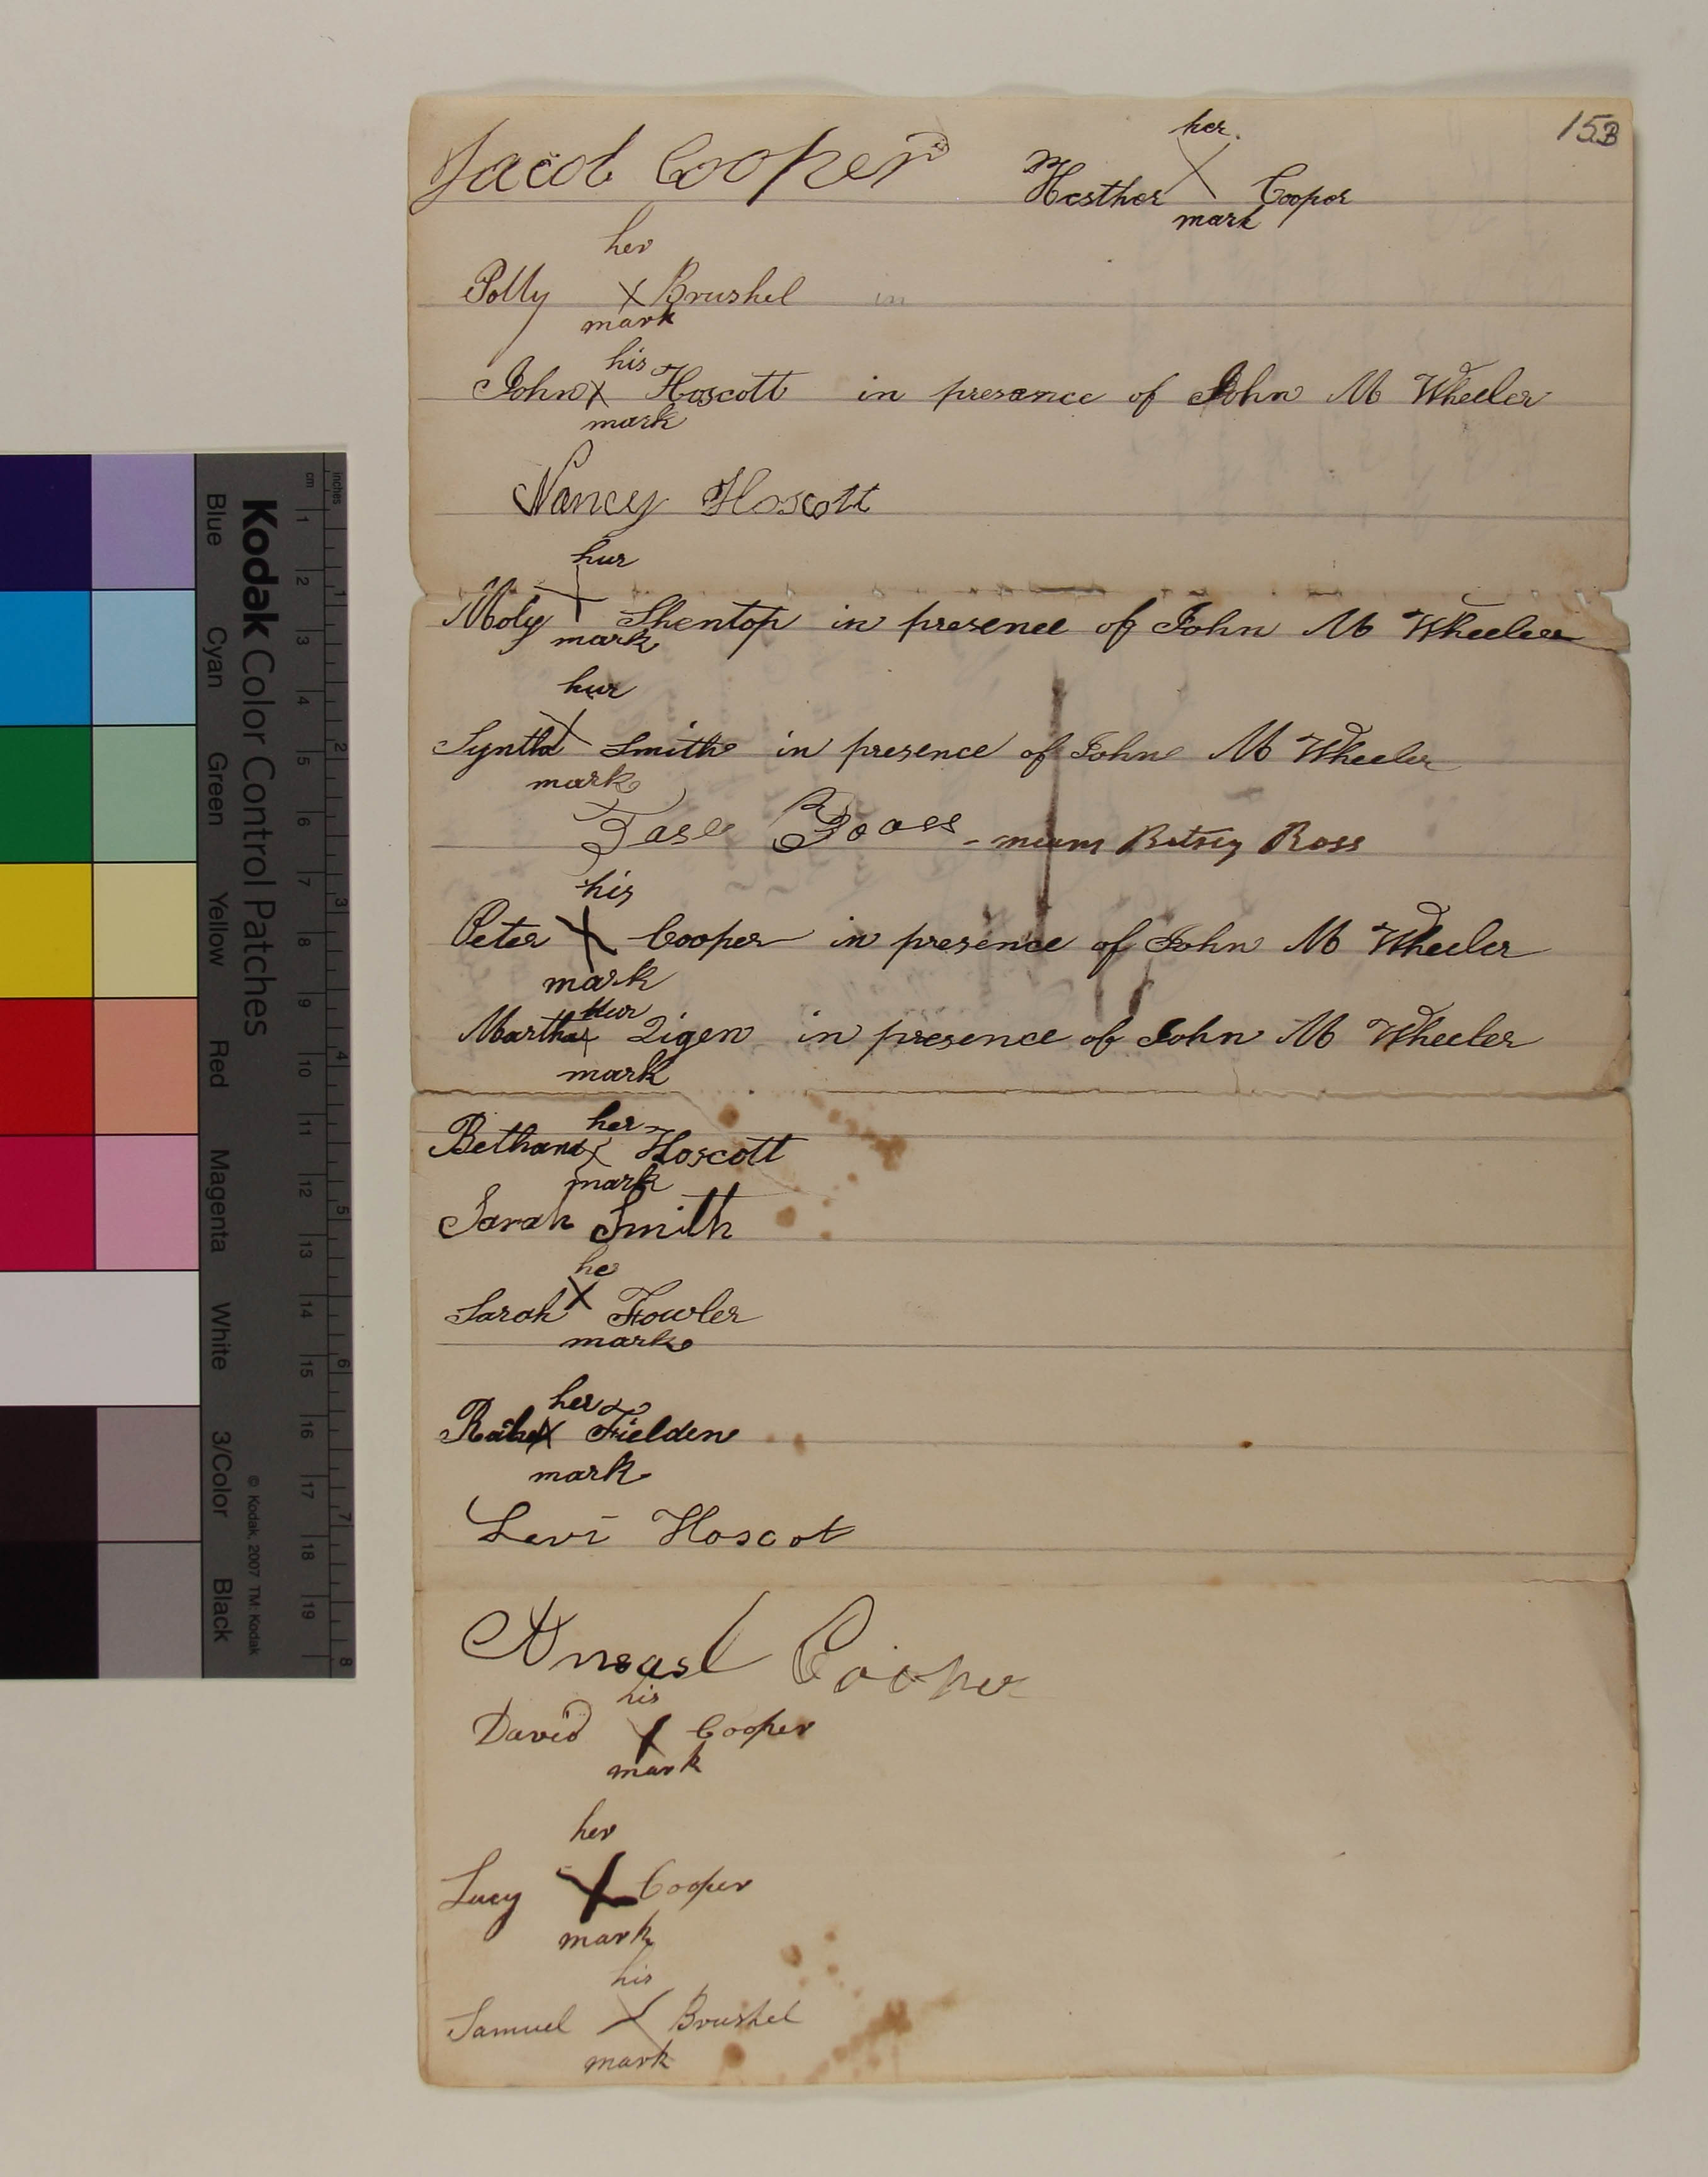 15B
Jacob Cooper
her.
Hesther X Cooper
mark
her
Polly X Brushel in
mark
his
John X Hoscott in presence of John M Wheeler
mark
Nancy Hoscott
hur
Moly X Shentop in presence of John M Wheeler
mark
hur
Syntha X Smith in presence of John M Wheeler
mark
- means Betsey Ross
his
Peter X Cooper in presence of John M Wheeler
mark
Hur
Martha X Qigen in presence of John M Wheeler
mark
her
Bethana X Hoscott
mark
Sarah Smith
he
Sarah X Fowler
mark
her
X Fielden
mark
Levi Hoscot
Cooper
his
David X Cooper
mark
her
Lucy X Cooper
mark
his
Samuel X Brushel
mark
Kodak Color Control Patches
© Kodak, 2007 TM: Kodak
Blue Cyan Green Yellow Red Magenta White 3/Color Black
inches 1 2 3 4 5 6 7 8
cm 1 2 3 4 5 6 7 8 9 10 11 12 13 14 15 16 17 18 19